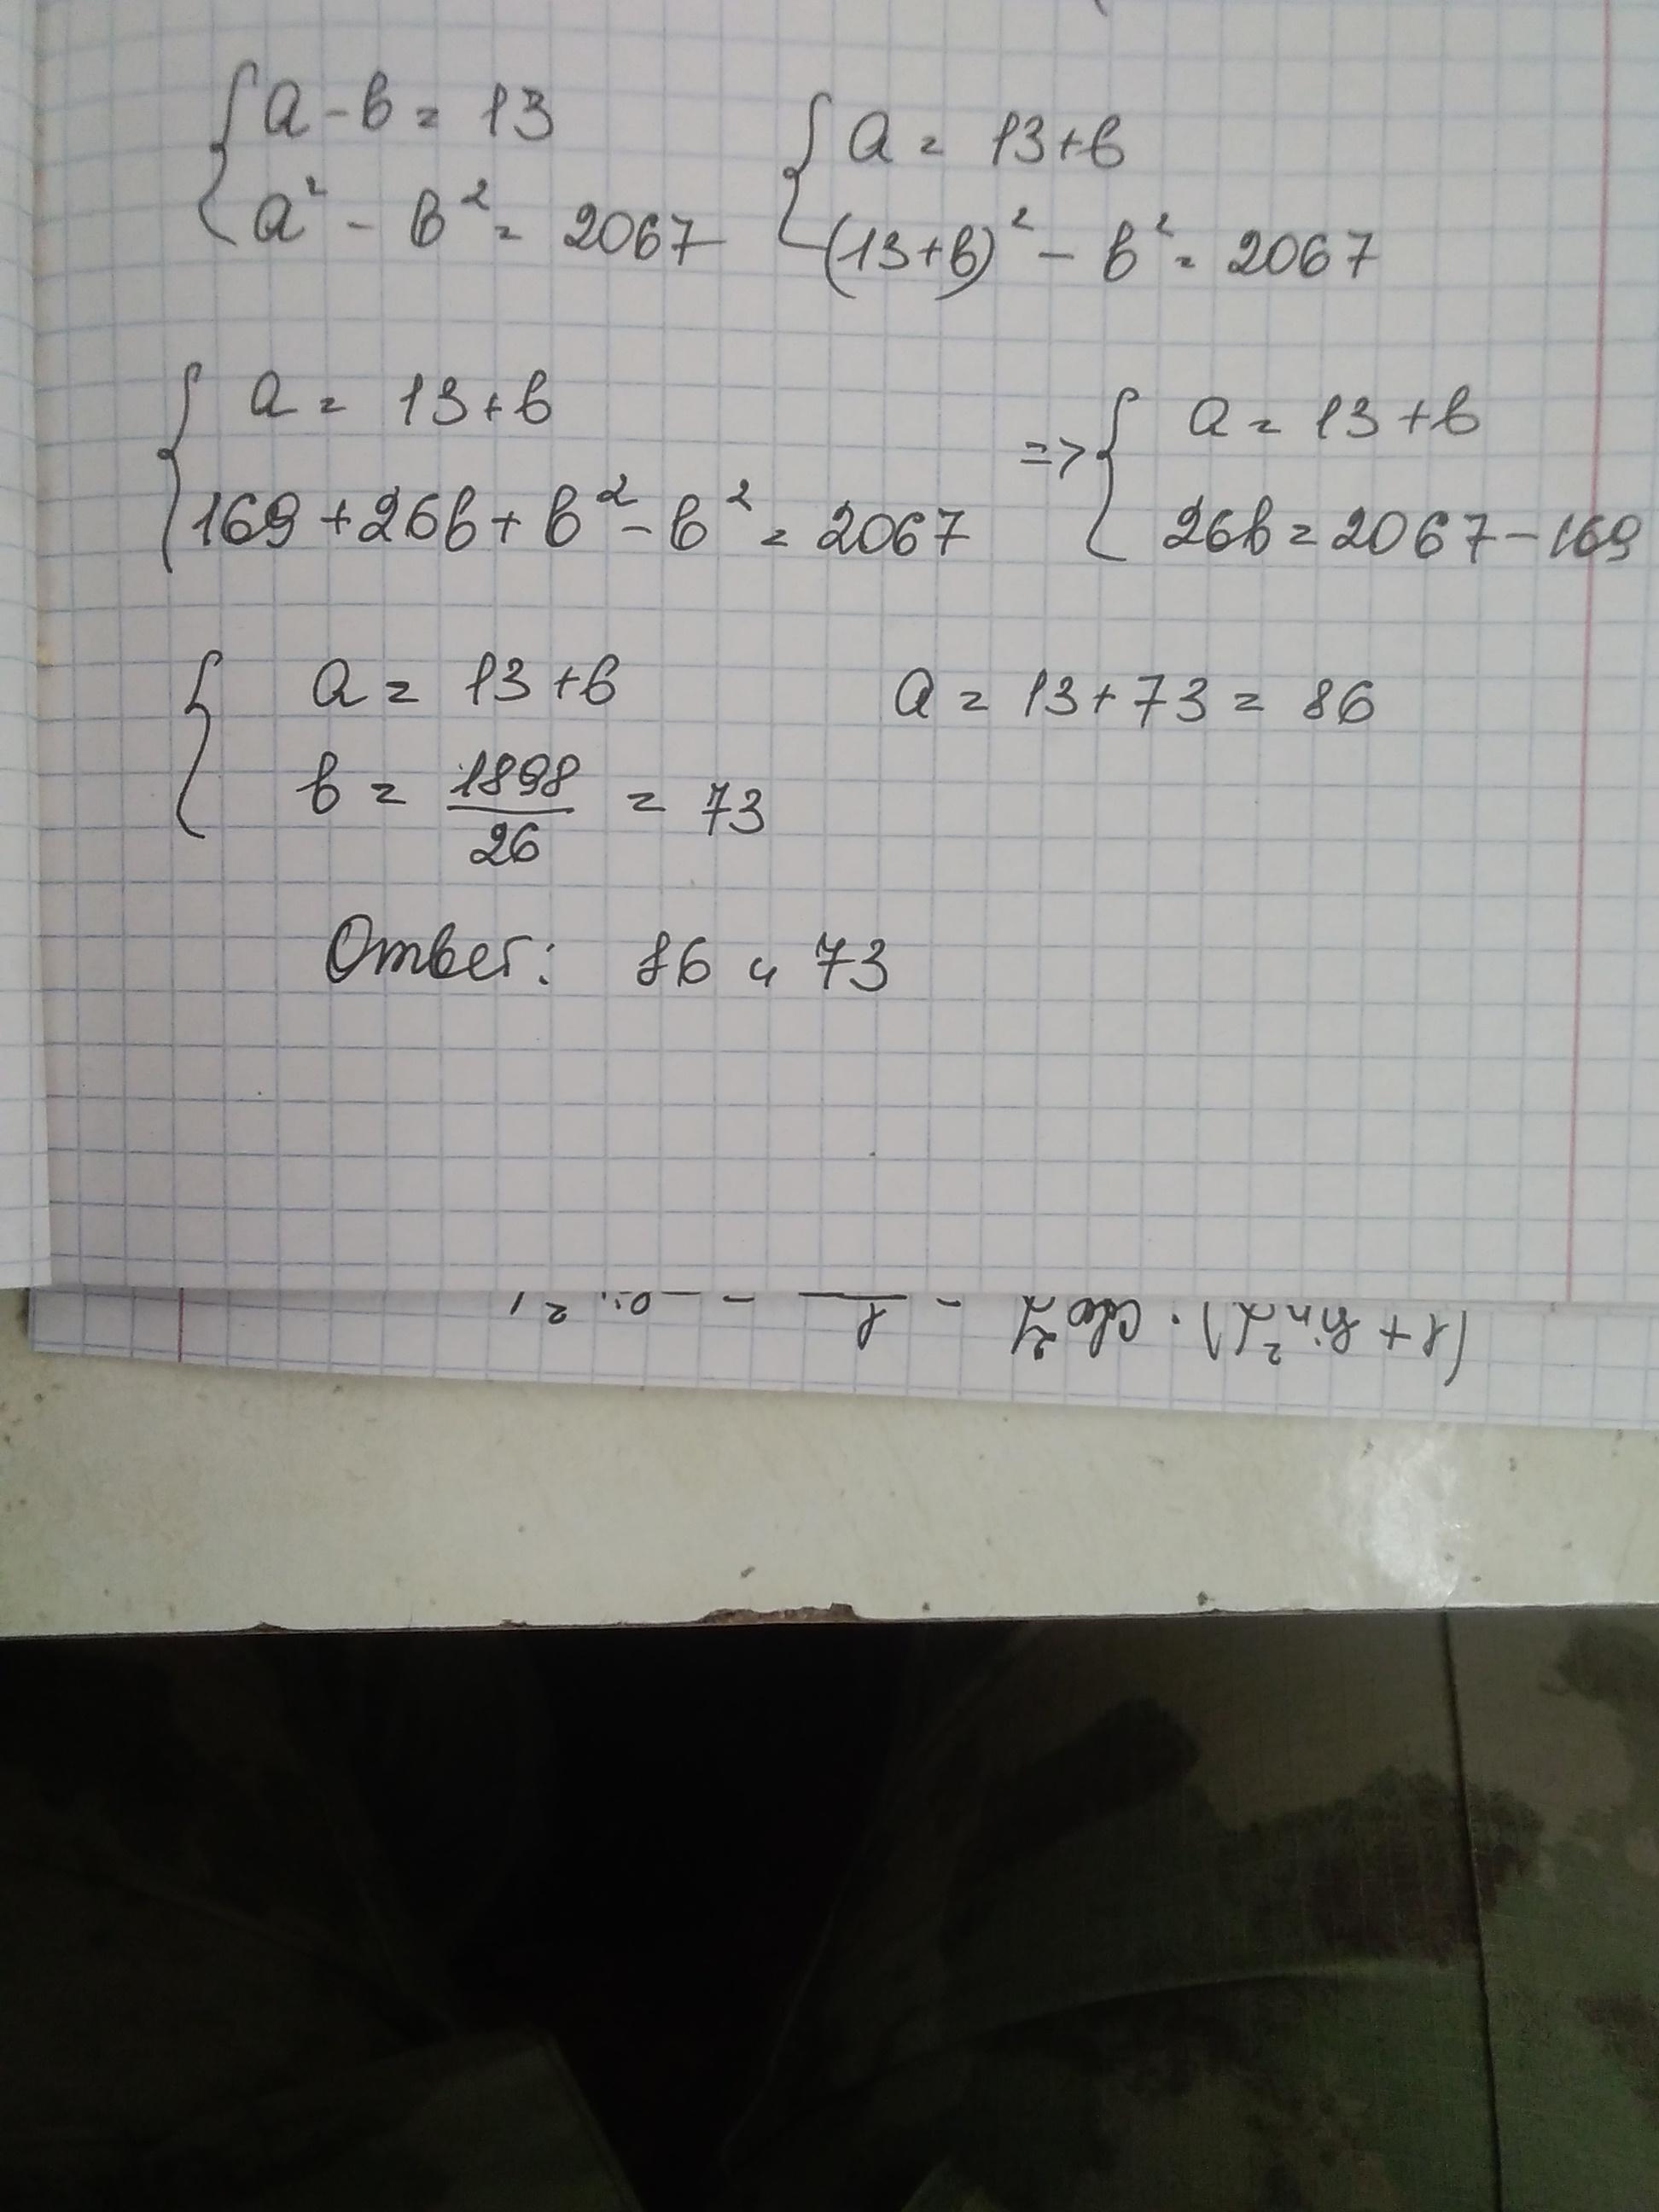 { a - b = 13
a² - b² = 2067
{ a = 13 + b
(13 + b)² - b² = 2067
{ a = 13 + b
169 + 26b + b² - b² = 2067
=> { a = 13 + b
26b = 2067 - 169
{ a = 13 + b
b = 1898/26 = 73
a = 13 + 73 = 86
Ответ: 86 и 73